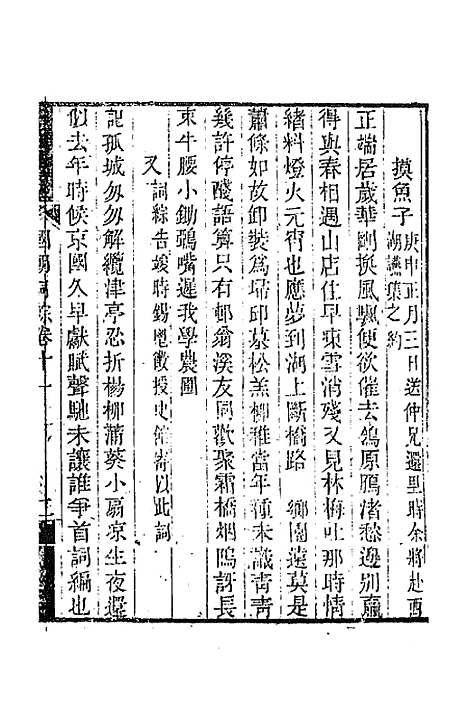 摸魚子庚申正月三日送仲兄還里時余將赴西
湖讌集之約
正端居歲華剛換風颿便欲催去鴒原鴈渚愁邊別贏
得與春相遇山店住早束雪消殘又見林梅吐那時情
緒料燈火元宵也應夢到湖上斷橋路　鄉園遠莫是
蕭條如故卸裝為埽邱墓松羔柳稚當年種未識青青
幾許停醆語算只有邨翁溪友同歡聚霜橋烟隖訝長
束牛腰小鋤鴉嘴遲我學農圃
又詞綜告竣時錫鬯徵授史館寄以此詞
記孤城匆匆解纜津亭忍折楊柳蒲葵小扇凉生夜還
似去年時候京國久早獻賦聲馳未讓誰爭首詞編也
國朝詞綜卷十一